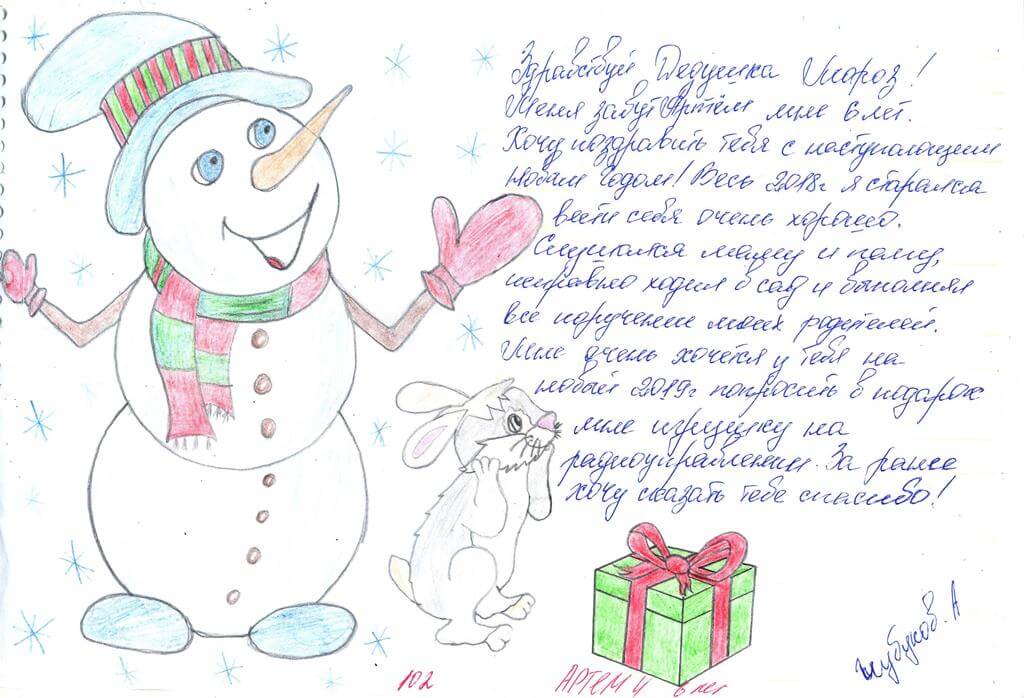 Здравствуй Дедушка Мороз!
Меня зовут Артём мне 6 лет.
Хочу поздравить тебя с наступающим
Новым Годом! Весь 2018г я старался
вести себя очень хорошо.
Слушался маму и папу,
исправно ходил в сад и выполнял
все поручении моих родителей.
Мне очень хочется у тебя на
новый 2019г попросить в подарок
мне игрушку на
радиоуправлении. За ранее
хочу сказать тебе спасибо!
А
102
АРТЕМ 6 лет